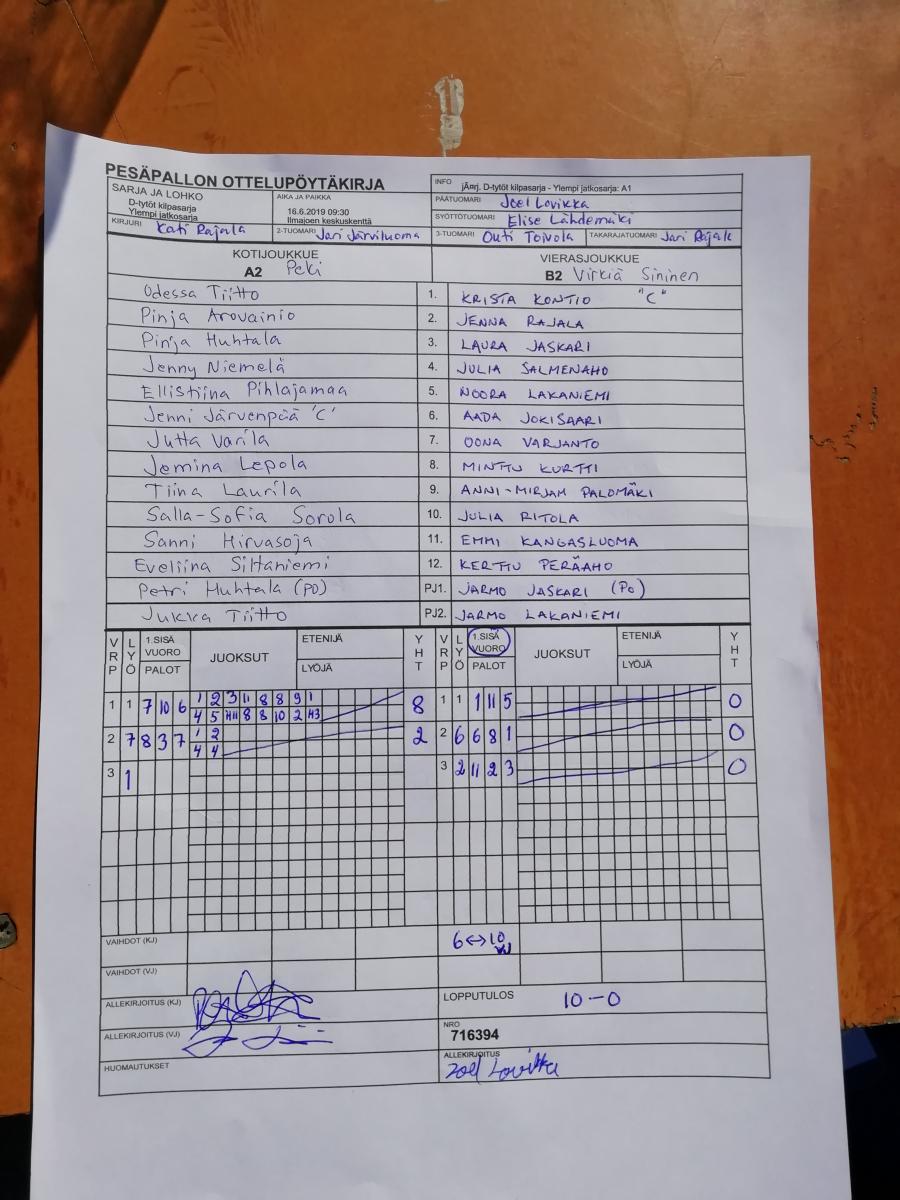 PESÄPALLON OTTELUPÖYTÄKIRJA
INFO jÄ¤rj. D-tytöt kilpasarja - Ylempi jatkosarja: A1
SARJA JA LOHKO
D-tytöt kilpasarja
Ylempi jatkosarja
AIKA JA PAIKKA
16.6.2019 09:30
Ilmajoen keskuskenttä
PÄÄTUOMARI Joel Lovikka
SYÖTTÖTUOMARI Elise Lähdemäki
KIRJURI Kati Rajala 2-TUOMARI Jari Järviluoma 3-TUOMARI Outi Toivola TAKARAJATUOMARI Jari Rajala
KOTIJOUKKUE VIERASJOUKKUE
A2 Peki B2 Virkiä Sininen
Odessa Tiitto 1. KRISTA KONTIO "C"
Pinja Arovainio 2. JENNA RAJALA
Pinja Huhtala 3. LAURA JASKARI
Jenny Niemelä 4. JULIA SALMENAHO
Ellistiina Pihlajamaa 5. NOORA LAKANIEMI
Jenni Järvenpää 'C' 6. AADA JOKISAARI
Jutta Varila 7. OONA VARJANTO
Jemina Lepola 8. MINTTU KURTTI
Tiina Laurila 9. ANNI-MIRJAM PALOMÄKI
Salla-Sofia Sorola 10. JULIA RITOLA
Sanni Hirvasoja 11. EMMI KANGASLUOMA
Eveliina Siltaniemi 12. KERTTU PERÄAHO
Petri Huhtala (PO) PJ1. JARMO JASKARI (PO)
Jukka Tiitto PJ2. JARMO LAKANIEMI
VRP LYÖ 1.SISÄ VUORO PALOT JUOKSUT ETENIJÄ LYÖJÄ YHT VRP LYÖ 1.SISÄ VUORO PALOT JUOKSUT ETENIJÄ LYÖJÄ YHT
1 1 7 10 6 1 2 3 11 8 8 9 1 8 1 1 1 11 5 0
4 5 8 8 10 2
2 7 8 3 7 1 2 2 2 6 6 8 1 0
4 4
3 1 3 2 11 2 3 0
VAIHDOT (KJ) 6↔10
VAIHDOT (VJ)
ALLEKIRJOITUS (KJ) LOPPUTULOS 10-0
ALLEKIRJOITUS (VJ) NRO
716394
HUOMAUTUKSET ALLEKIRJOITUS
Joel Lovikka